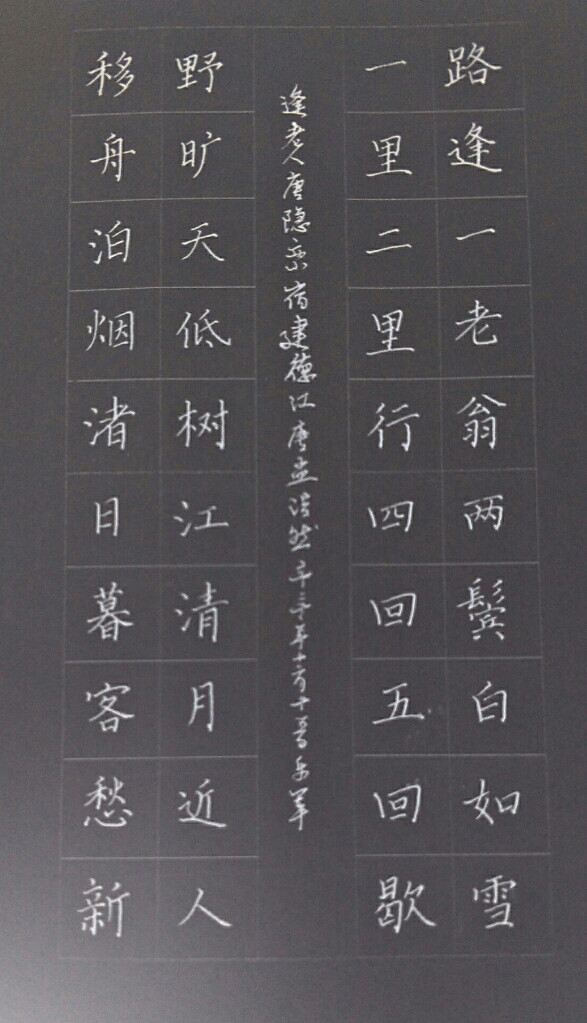 路逢一老翁两鬓白如雪
一里二里行四回五回歇
逢老人唐隐峦宿建德江唐孟浩然
野旷天低树江清月近人
移舟泊烟渚日暮客愁新